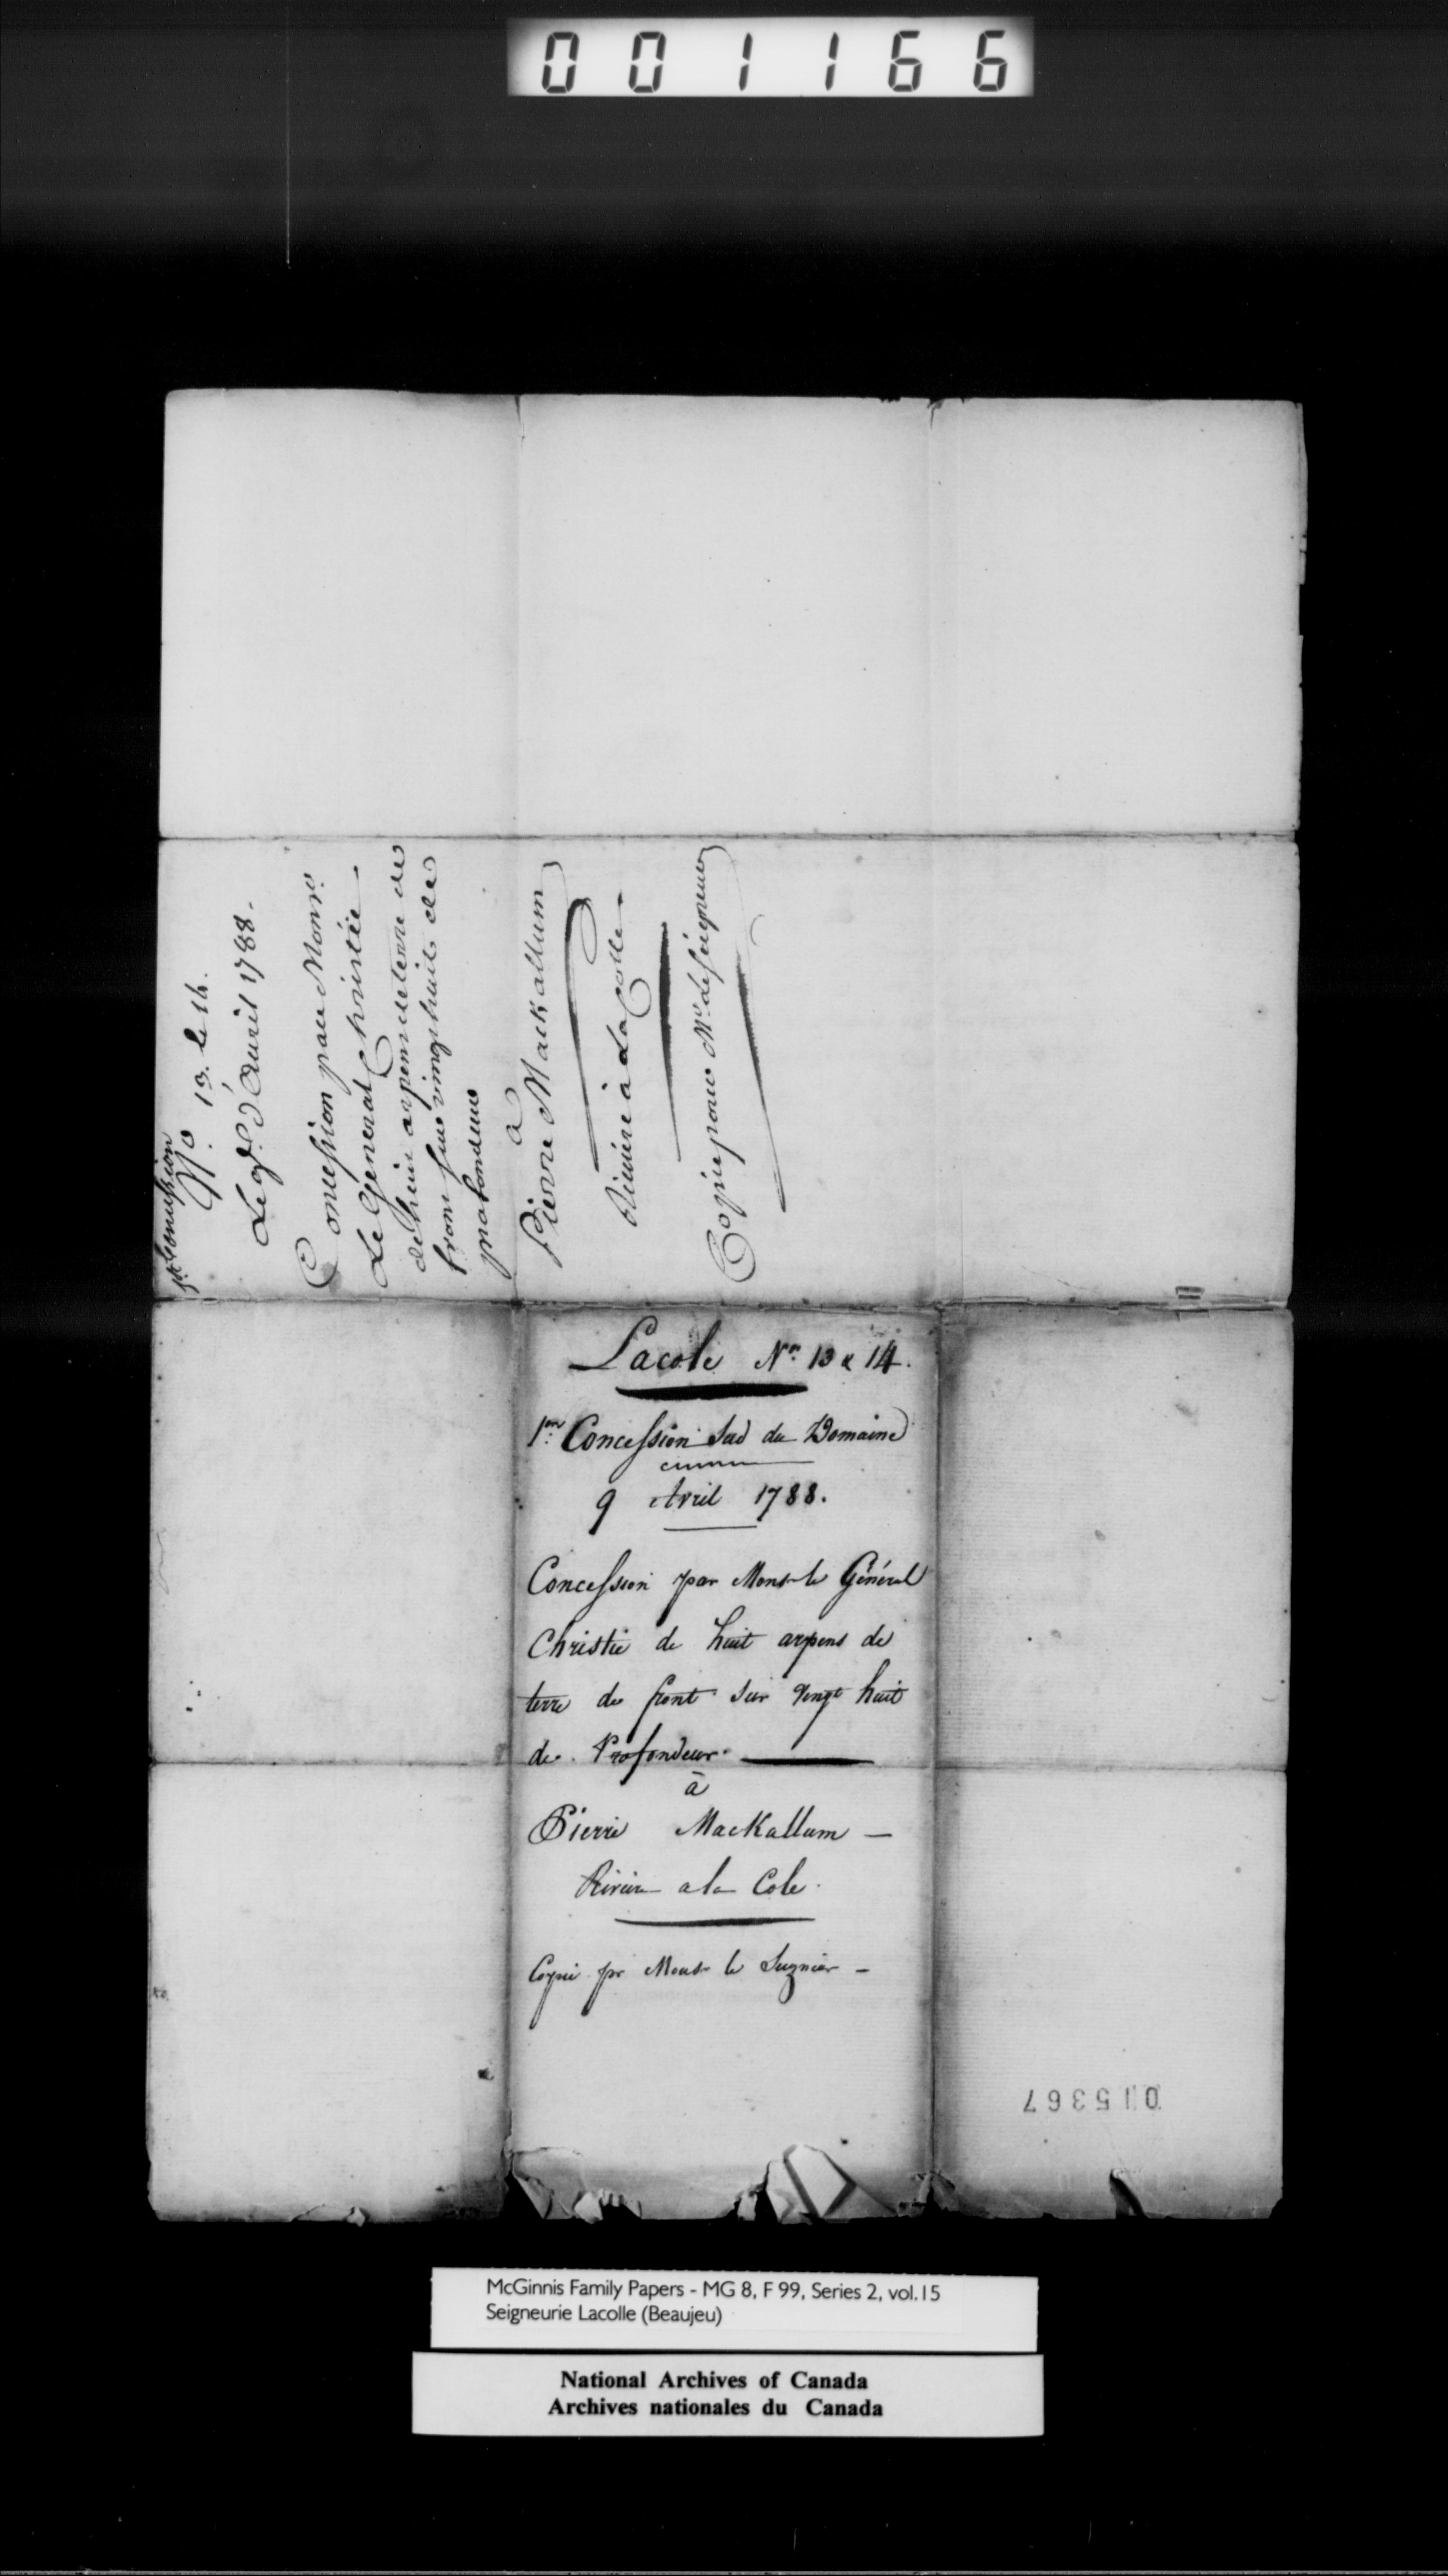 001166
1re Concession
No. 13. le 14.
Le 9e. d'Auril 1788.
Concession par Monsr.
Le Général Christie
de huit arpens de terre de
front sur vingt huit de
profondeur
à
Pierre Mackallum
Riviere à La Colle
Copie pour Mr. le Seigneur
Lacole Nos. 13 & 14.
1re Concession Sud du Domaine
9 Avril 1788.
Concession par Monsr le Général
Christie de huit arpens de
terre de front sur vingt huit
de Profondeur.
à
Pierre MacKallum —
Riviere a la Cole.
Copie pr Monsr le Seignier —
015367
McGinnis Family Papers - MG 8, F 99, Series 2, vol.15
Seigneurie Lacolle (Beaujeu)
National Archives of Canada
Archives nationales du Canada